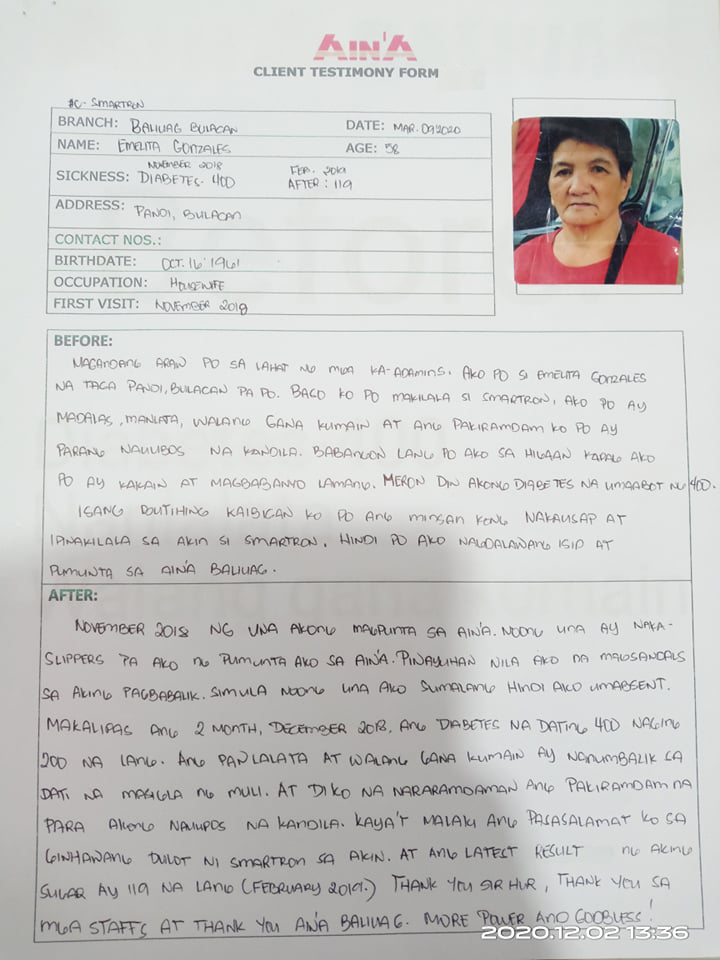 AIN'A
CLIENT TESTIMONY FORM
#C- SMARTRON
BRANCH: BALIUAG BULACAN DATE: MAR. 09 2020
NAME: EMELITA GONZALES AGE: 58
NOVEMBER 2018 FEB. 2019
SICKNESS: DIABETES- 400 AFTER: 119
ADDRESS: PANDI, BULACAN
CONTACT NOS.:
BIRTHDATE: OCT. 16 1961
OCCUPATION: HOUSEWIFE
FIRST VISIT: NOVEMBER 2018
BEFORE:
MAGANDANG ARAW PO SA LAHAT NG MGA KA-ADAMINS. AKO PO SI EMELITA GONZALES
NA TAGA PANDI, BULACAN PA PO. BAGO KO PO MAKILALA SI SMARTRON, AKO PO AY
MADALAS, MANLATA, WALANG GANA KUMAIN AT ANG PAKIRAMDAM KO PO AY
PARANG NAUUBOS NA KANDILA. BABANGON LANG PO AKO SA HIGAAN KAPAG AKO
PO AY KAKAIN AT MAGBABANYO LAMANG. MERON DIN AKONG DIABETES NA UMAABOT NG 400.
ISANG BUTIHING KAIBIGAN KO PO ANG MINSAN KONG NAKAUSAP AT
IPINAKILALA SA AKIN SI SMARTRON. HINDI PO AKO NAGDALAWANG ISIP AT
PUMUNTA SA AIN'A BALIUAG.
AFTER:
NOVEMBER 2018 NG UNA AKONG MAGPUNTA SA AIN'A. NOONG UNA AY NAKA-
SLIPPERS PA AKO NG PUMUNTA AKO SA AIN'A. PINAYUHAN NILA AKO NA MAGSANDALS
SA AKING PAGBABALIK. SIMULA NOONG UNA AKO SUMALANG HINDI AKO UMABSENT.
MAKALIPAS ANG 2 MONTH, DECEMBER 2018, ANG DIABETES NA DATING 400 NAGING
200 NA LANG. ANG PANLALATA AT WALANG GANA KUMAIN AY NANUMBALIK SA
DATI NA MASIGLA NG MULI. AT DI KO NA NARARAMDAMAN ANG PAKIRAMDAM NA
PARA AKONG NAUUPOS NA KANDILA. KAYA'T MALAKI ANG PASASALAMAT KO SA
GINHAWANG DULOT NI SMARTRON SA AKIN. AT ANG LATEST RESULT NG AKING
SUGAR AY 119 NA LANG (FEBRUARY 2019.) THANK YOU SIR HUR, THANK YOU SA
MGA STAFFS AT THANK YOU AIN'A BALIUAG. MORE POWER AND GODBLESS!
2020.12.02 13:36